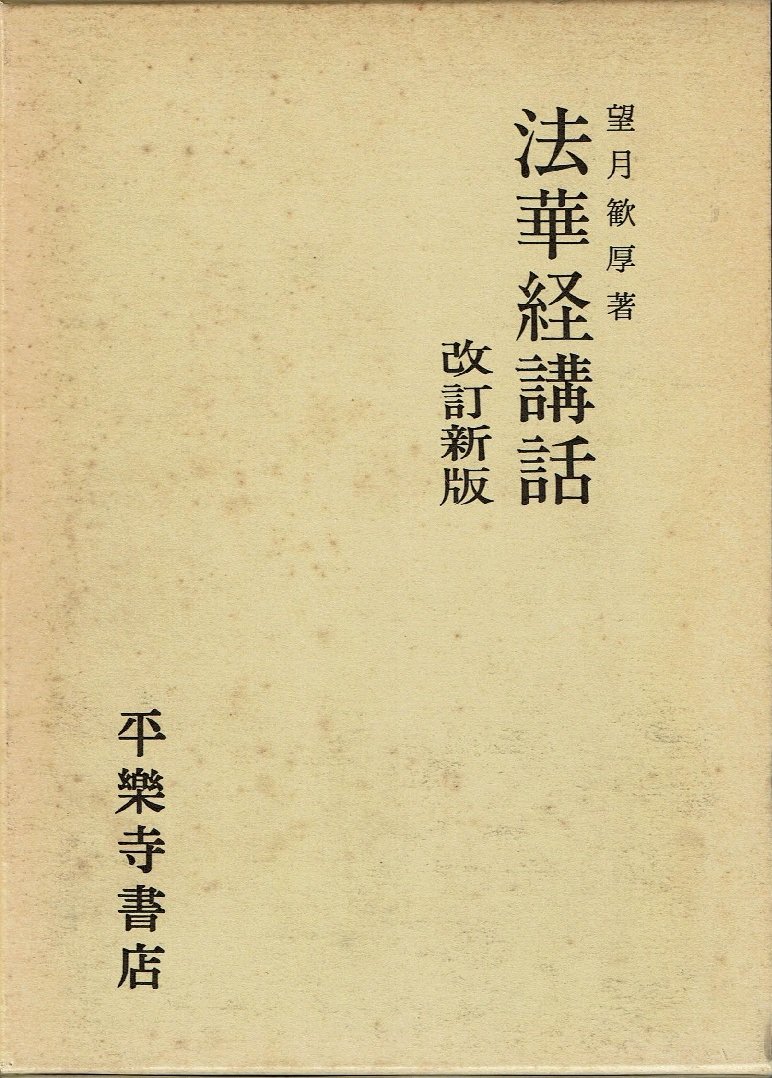 望月歓厚著
法華経講話
改訂新版
平樂寺書店